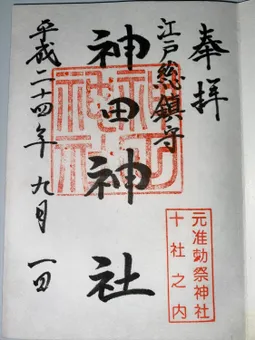 奉拝
江戸総鎮守
神田神社
平成二十四年九月一日
元准勅祭神社
十社之内